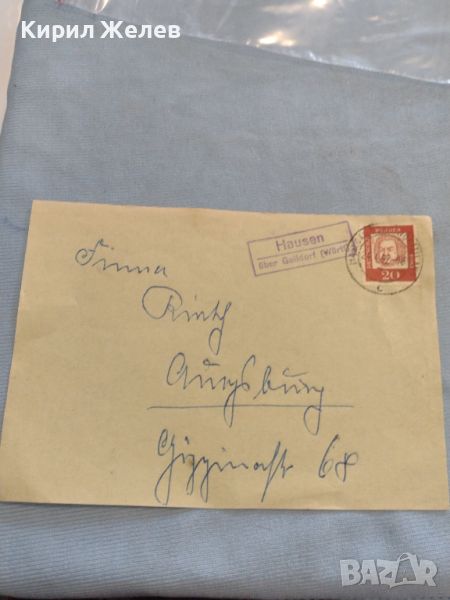 Кирил Желев
Hausen
über Gaildorf (Württ)
20
Firma
Rieth
Augsburg
68
BAZAR